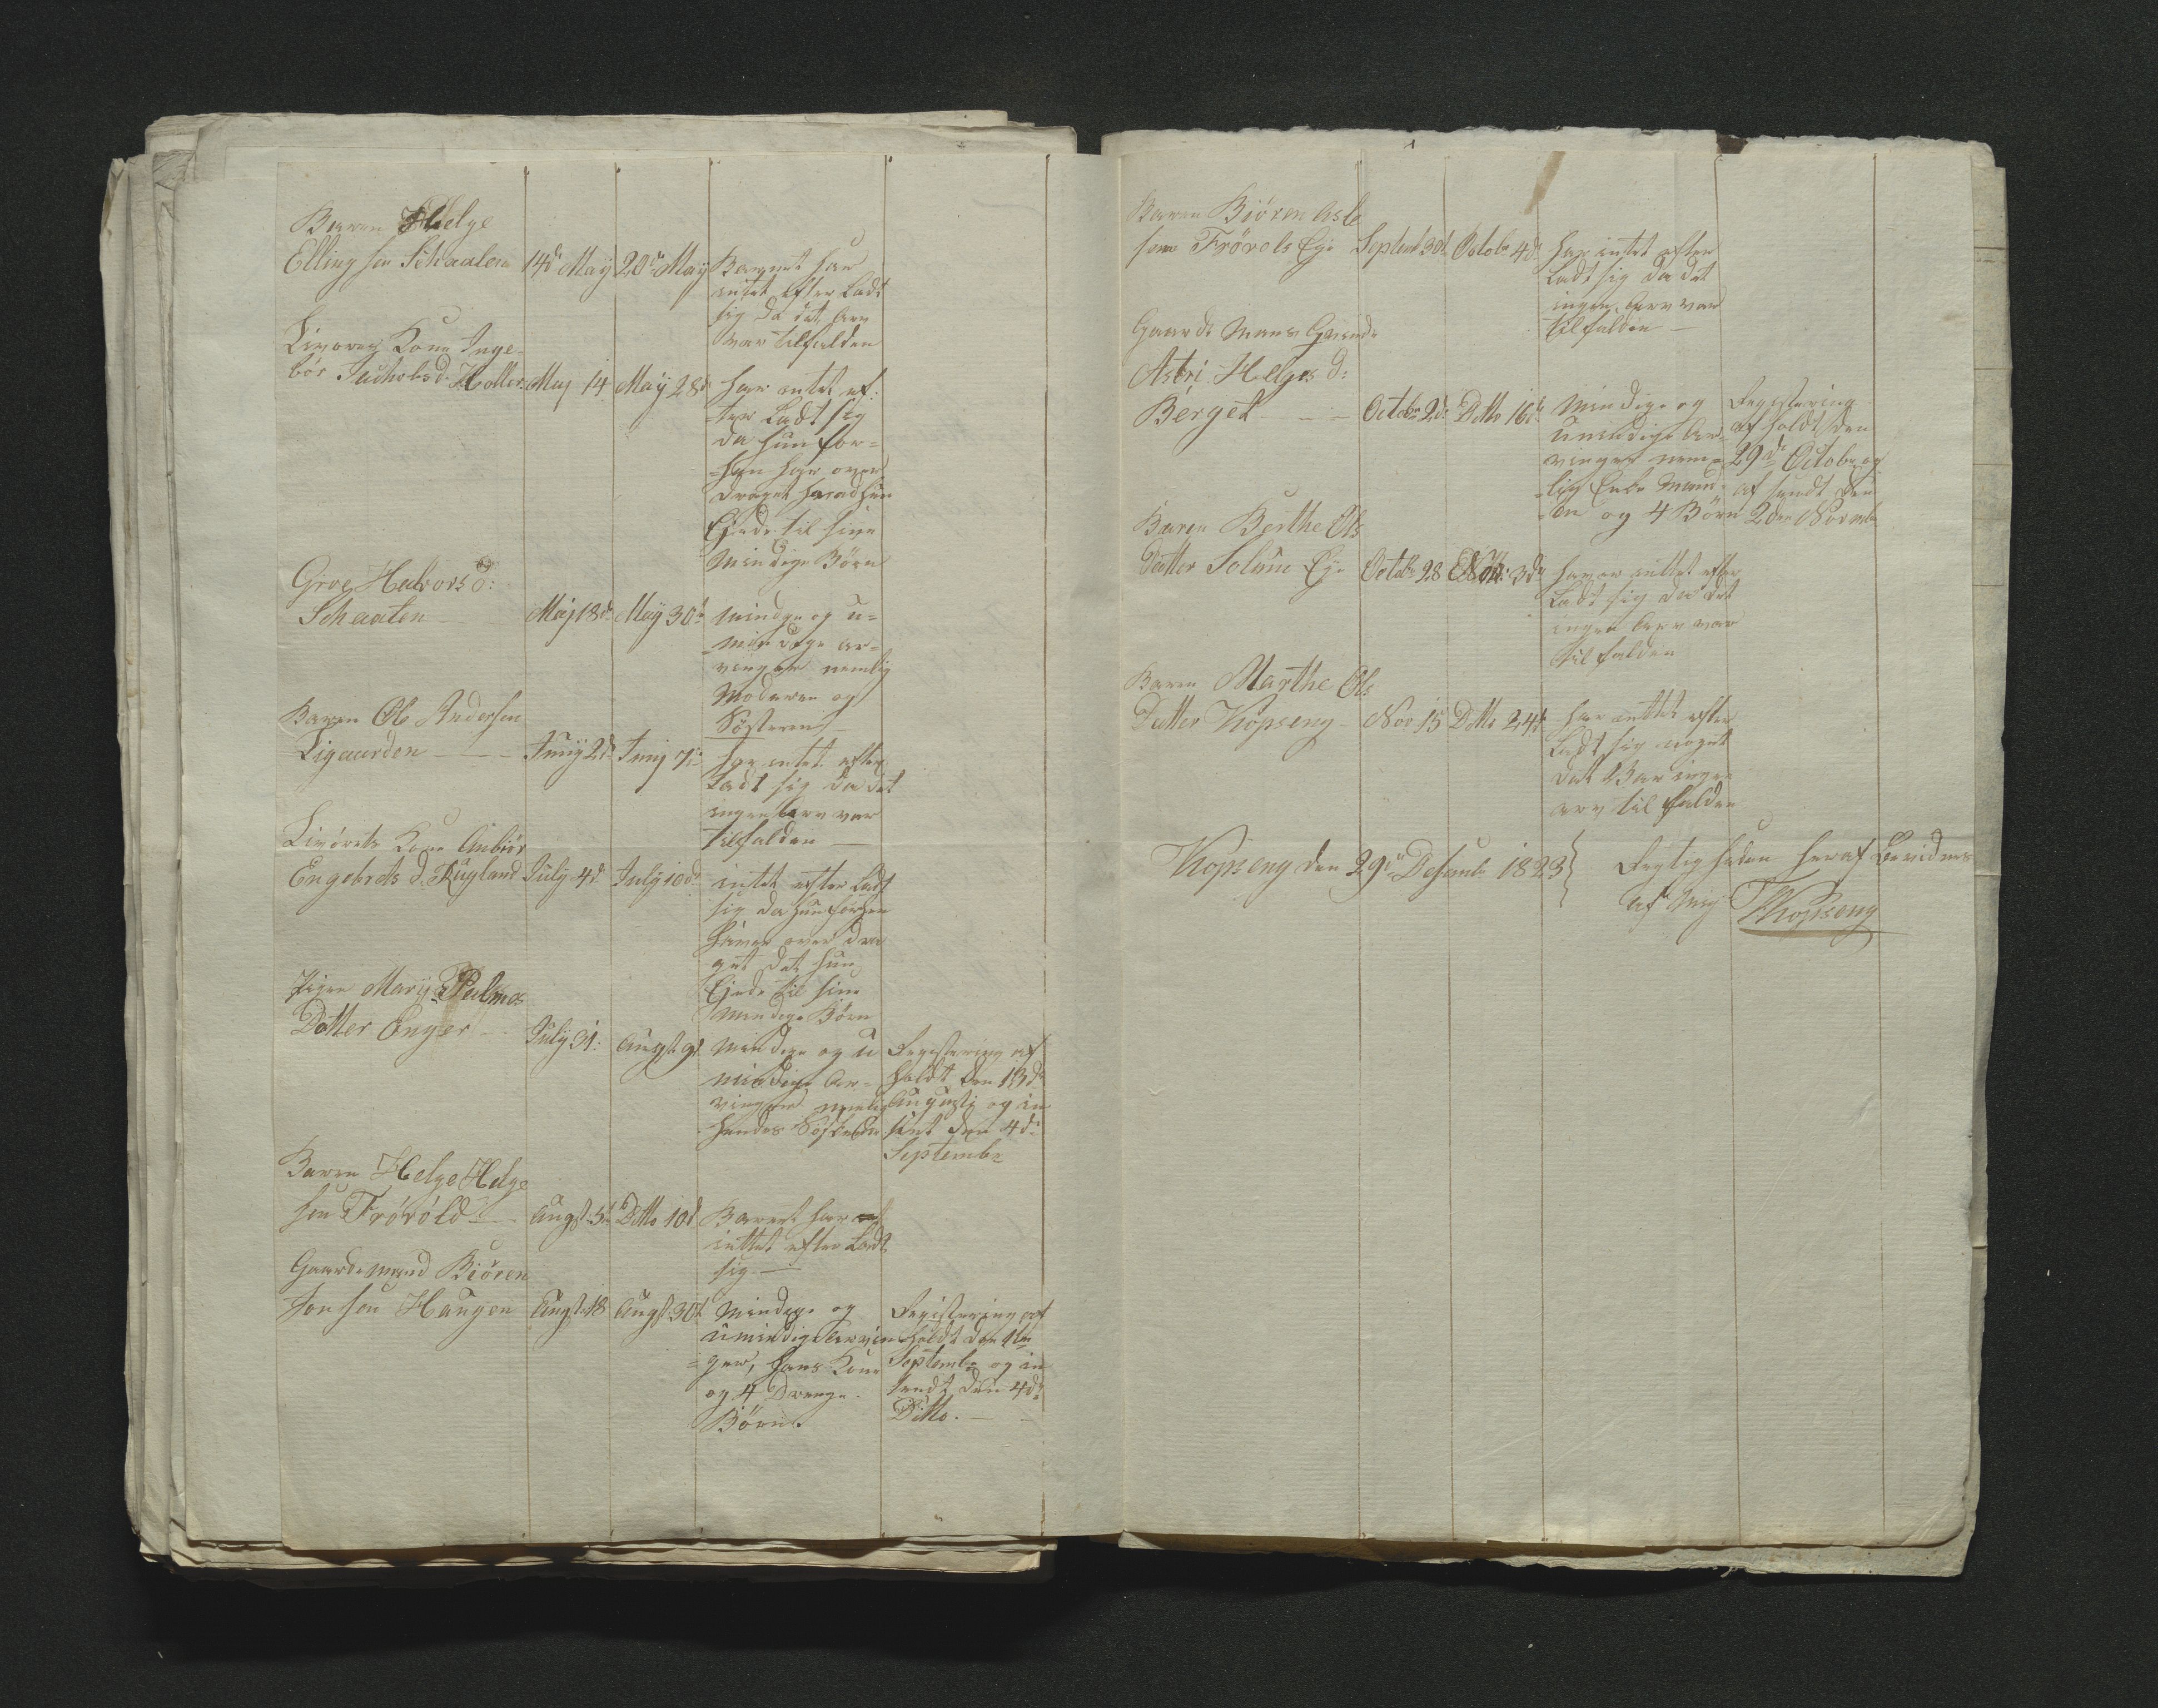 Baren Helge
Elling sen Schaalen 14d May 20de May Barnet har
intet efter Ladt
sig da det Arv
var tilfalden
Livoreg Kone Inge-
bör Jachobsd. Holler May 14 May 28d har intet ef-
ter Ladt sig
da hun for-
hen har over
draget hvad hun
Ejede til sine
Mindige Börn
Groe Halvors d:
Schaalen Maj 18de May 30d mindge og u-
mindige ar-
vinger nemlig
Moderen og
Söstren
Baren Ole Andersen
Ligaarden Junij 2d Junij 7de har intet efter
Ladt sig da det
ingen arv var
tilfalden
Livörets Kone Anbiör
Engebrets d. Rugland July 4d July 10d intet efter Ladt
sig da hun forhen
haver over dra
get det hun
Ejede til sine
Mindige Börn
Pigen Marij Palmes
Dotter Enger July 31: Augst 9d Mindige og u
mindige Ar-
vinger nemlig
hendes Söskende
Registering af
holdt den 13de
Augustij og in
sent den 4de
Septembr
Baren Helge Helge
sen Frövöld Augst 5d Ditto 10d Barnet har
intet efter Ladt
sig
Gaardemand Biören
Jonsen Haugen Augst 18 Augst 30d Mindige og
umindige Arvin
ger, hans Kone
og 4 Drenge
Börn.
Registering af
holdt den 1te
Septembr og in
sendt den 4de
Ditto.
Baren Biören Asle
sen Frövols Eje Septembr 30d Octobr 4de har intet efter
Ladt sig da det
ingen Arv var
tilfalden
Gaard Mans Qvinde
Astri Helges d:
Berget Octobr 2de Ditto 16de Mindige og
umindige Ar-
vinger nem-
lig Enke Mand-
en og 4 Börn
Registering
af holdt den
29de Octobr og
af sendt den
2den Novembr
Baren Berthe Ols
Datter Solöm Eje Octobr 28 Nov: 3de haver inttet efter
Ladt sig da det
ingen Arv var
tilfalden
Baren Marthe Ols
Datter Kopseng Nov 15 Ditto 24de har inttet efter
Ladt sig noget
det Bar ingen
arv til falden
Kopseng den 29de Desembr 1823 Regtigheden heraf Bevidnes
af Mig Kopseng